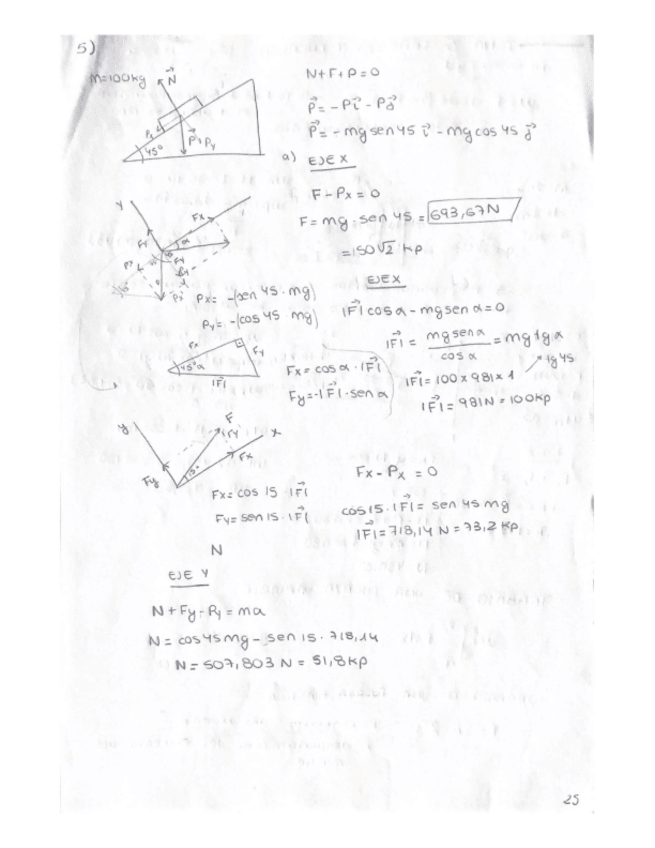 5)
m=100kg
N⃗
N+F+P=0
P⃗ = -Pi⃗ - Pj⃗
P⃗ = -mg sen45 i⃗ - mg cos 45 j⃗
45°
a) EJE X
F-Px = 0
F= mg · sen 45 = 693,67N
=150√2 kp
Y
Fx
α
Px = -(sen 45 · mg)
Py = -(cos 45 mg)
EJE X
|F⃗| cos α - mg sen α = 0
|F⃗| = mg sen α / cos α = mg tg α
tg 45
Fx
Fy
45° α
|F|
Fx = cos α · |F⃗|
Fy = -|F⃗| · sen α
|F⃗| = 100 x 981 x 1
|F⃗| = 981N = 100kp
y
F
x
Fy
Fx
15°
Fx = cos 15 · |F⃗|
Fy = sen 15 · |F⃗|
Fx - Px = 0
cos 15 · |F⃗| = sen 45 mg
|F⃗| = 718,14 N = 73,2 kp
N
EJE Y
N + Fy - Py = ma
N = cos45 mg - sen 15 · 718,14
N = 507,803 N = 51,8 kp
25